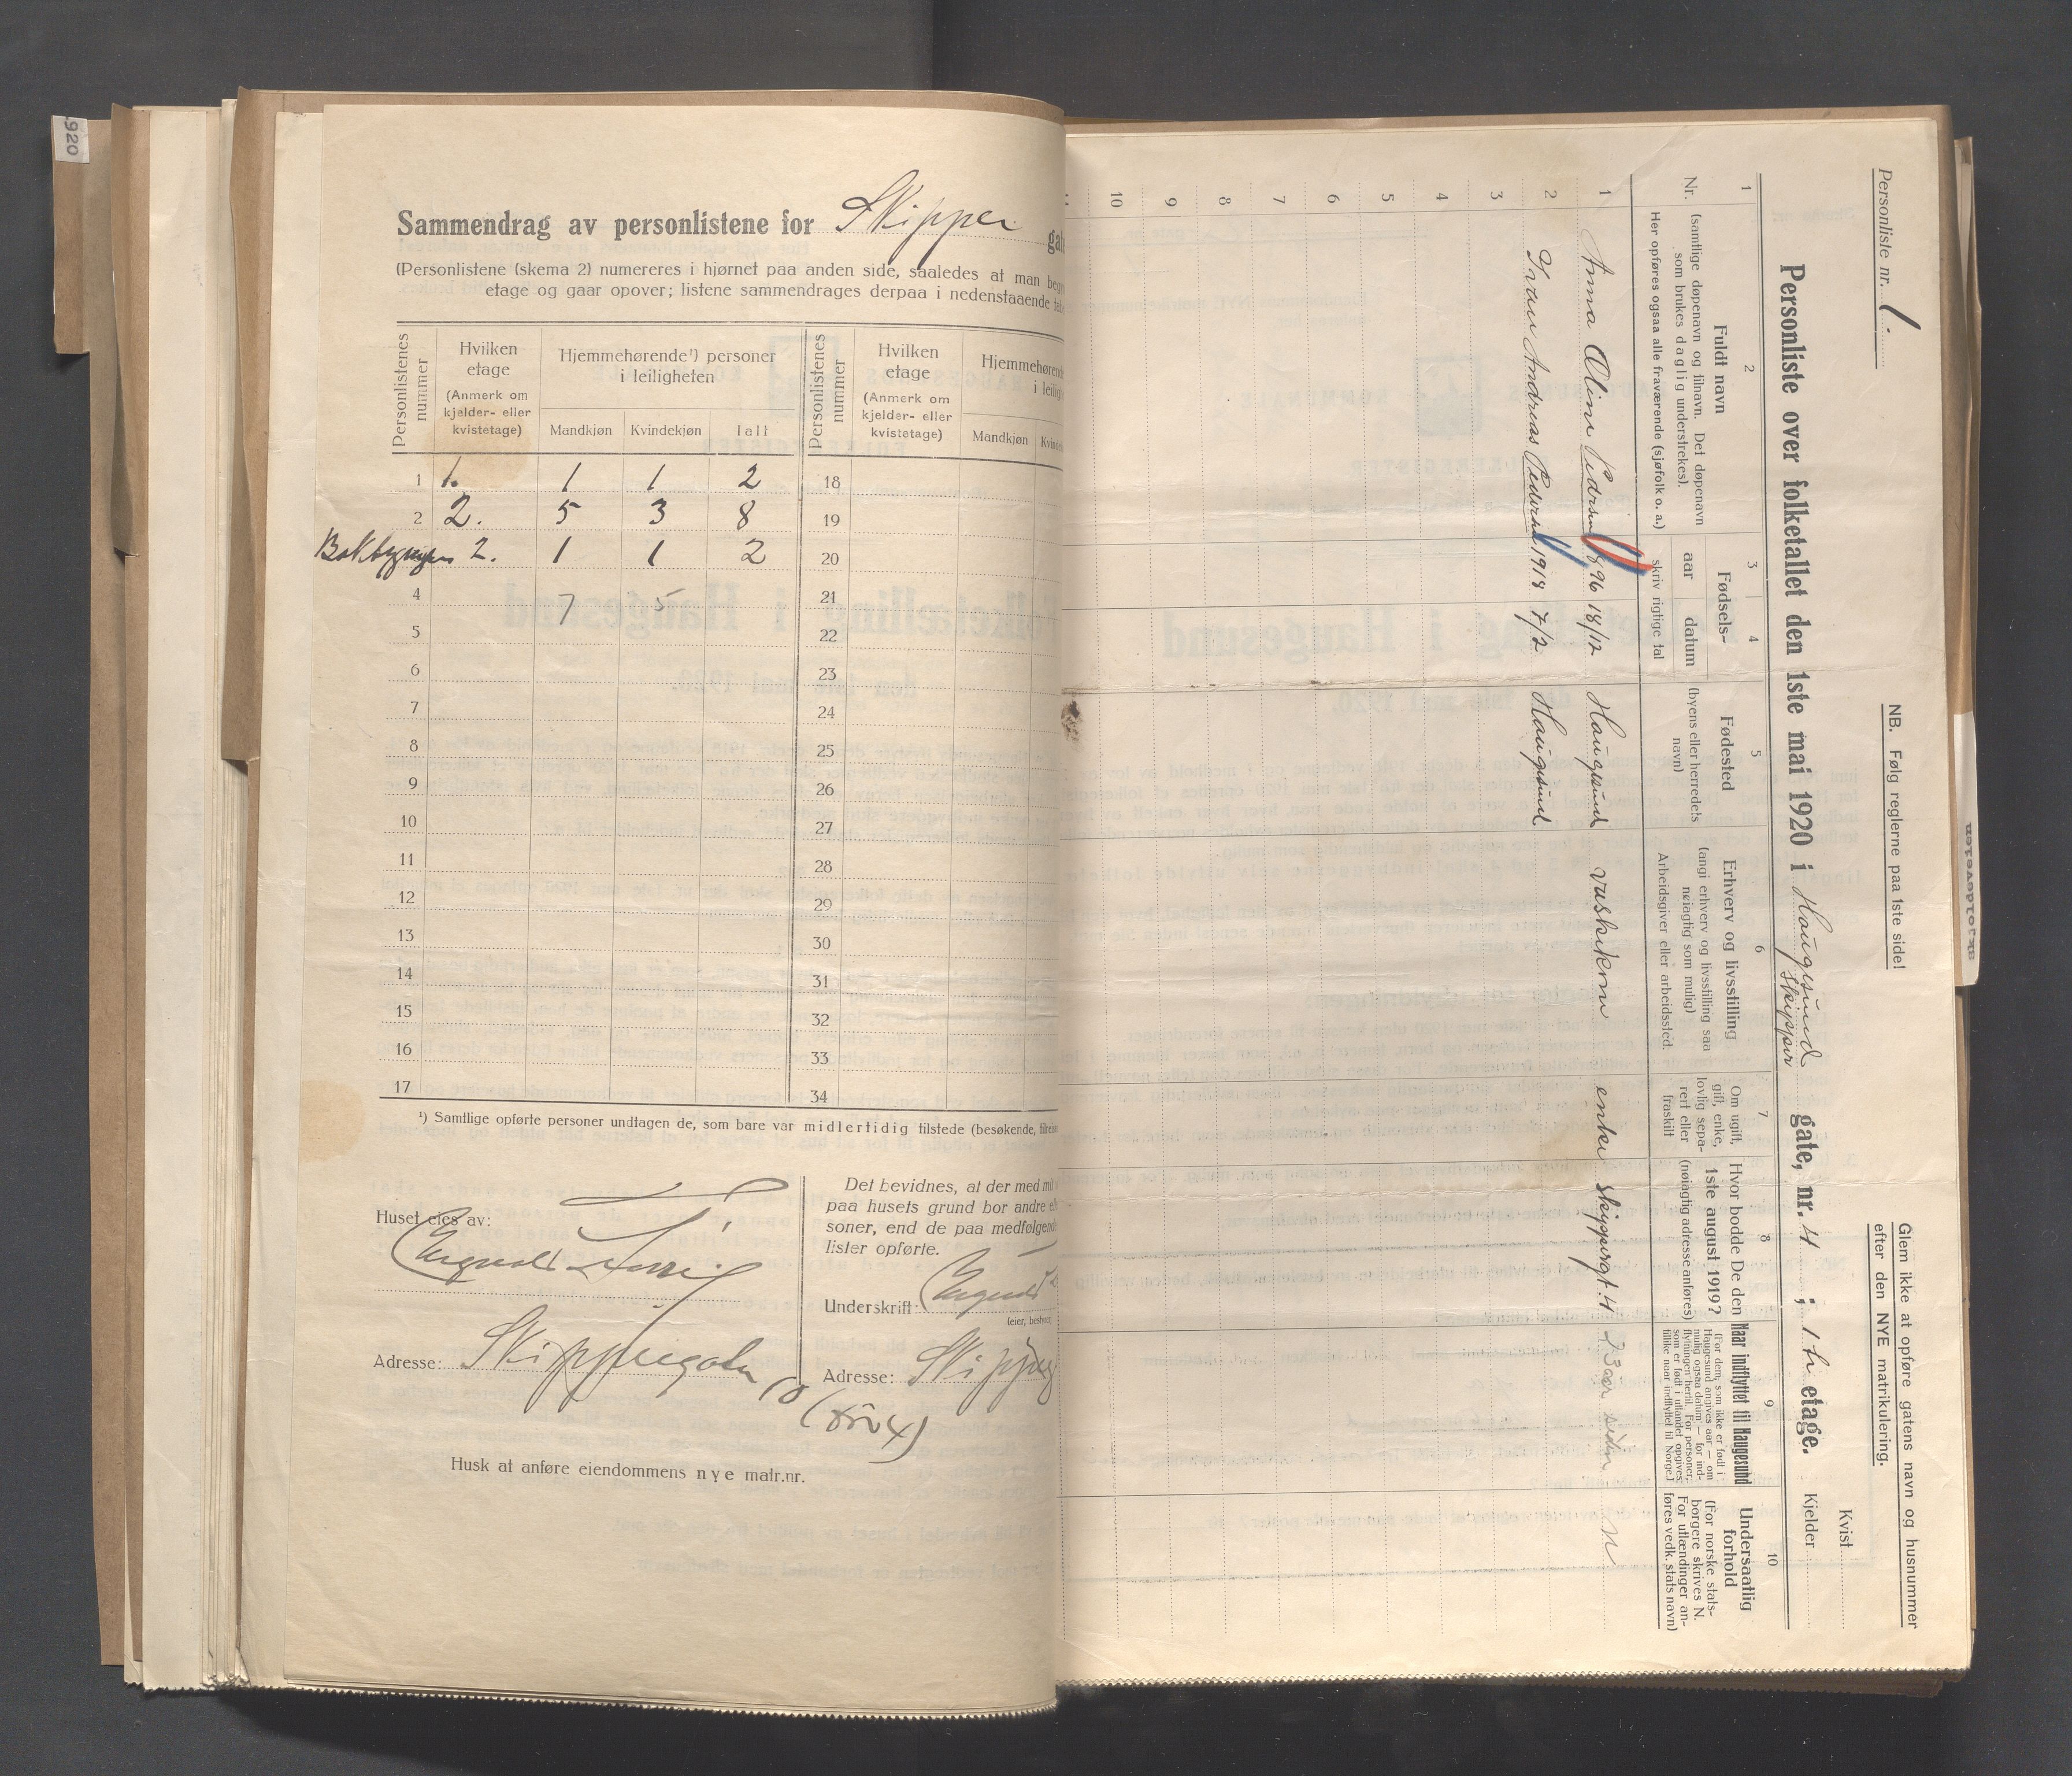 920
Sammendrag av personlistene for Skipper
(Personlistene (skema 2) numereres i hjørnet paa anden side, saaledes at man
etage og gaar opover; listene sammendrages derpaa i nedenstaaende
Personlistenes nummer
Hvilken etage
(Anmerk om kjelder- eller kvistetage)
Hjemmehørende¹) personer i leiligheten
Mandkjøn Kvindekjøn Ialt
Personlistenes nummer
Hvilken etage
(Anmerk om kjelder- eller kvistetage)
Mandkjøn
1 1. 1 1 2 18
2 2. 5 3 8 19
2. 1 1 2 20
4 7 5 21
5 22
6 23
7 24
8 25
9 26
10 27
11 28
12 29
13 30
14 31
15 32
16 33
17 34
¹) Samtlige opførte personer undtagen de, som bare var midlertidig tilstede (besøkende,
Huset eies av:
Adresse:
10
Det bevidnes, at der med
paa husets grund bor andre
soner, end de paa medfølgende
lister opførte.
Underskrift:
(eier,
Adresse:
Husk at anføre eiendommens nye matr.nr.
Personliste nr. 1.
NB. Følg reglerne paa 1ste side!
Glem ikke at opføre gatens navn og husnummer
efter den NYE matrikulering.
Personliste over folketallet den 1ste mai 1920 i Haugesund
Skipper gate, nr. 4 ; 1 etage.
Kvist
Kjelder
1 2 3 4 5 6 7 8 9 10
Nr.
Fuldt navn
(samtlige døpenavn og tilnavn. Det døpenavn
som brukes daglig understrekes).
Her opføres ogsaa alle fraværende (sjøfolk o. a.)
Fødsels-
aar datum
skriv rigtige tal
Fødested
(byens eller herredets
navn)
Erhverv og livsstilling
(angi erhverv og livsstilling saa
nøiagtig som mulig)
Arbeidsgiver eller arbeidssted.
Om ugift,
gift, enke,
lovlig sepa-
rert eller
fraskilt
Hvor bodde De den
1ste august 1919?
(nøiagtig adresse anføres)
Naar indflyttet til Haugesund
(For dem, som ikke er født i
Haugesund angives aar — om
mulig ogsaa datum — for ind-
flytningen hertil. For personer,
som er født i utlandet opgives
tillike naar indflyttet til Norge.)
Undersaatlig
forhold
(For norske stats-
borgere skrives N.
For utlændinger an-
føres vedk. stats navn)
1 Anna Oline Pedersen 1896 18/12 Haugesund vaskekone enke skippergt. 4 N
2 Ivar Andreas Pedersen 1918 7/2 Haugesund
3
4
5
6
7
8
9
10